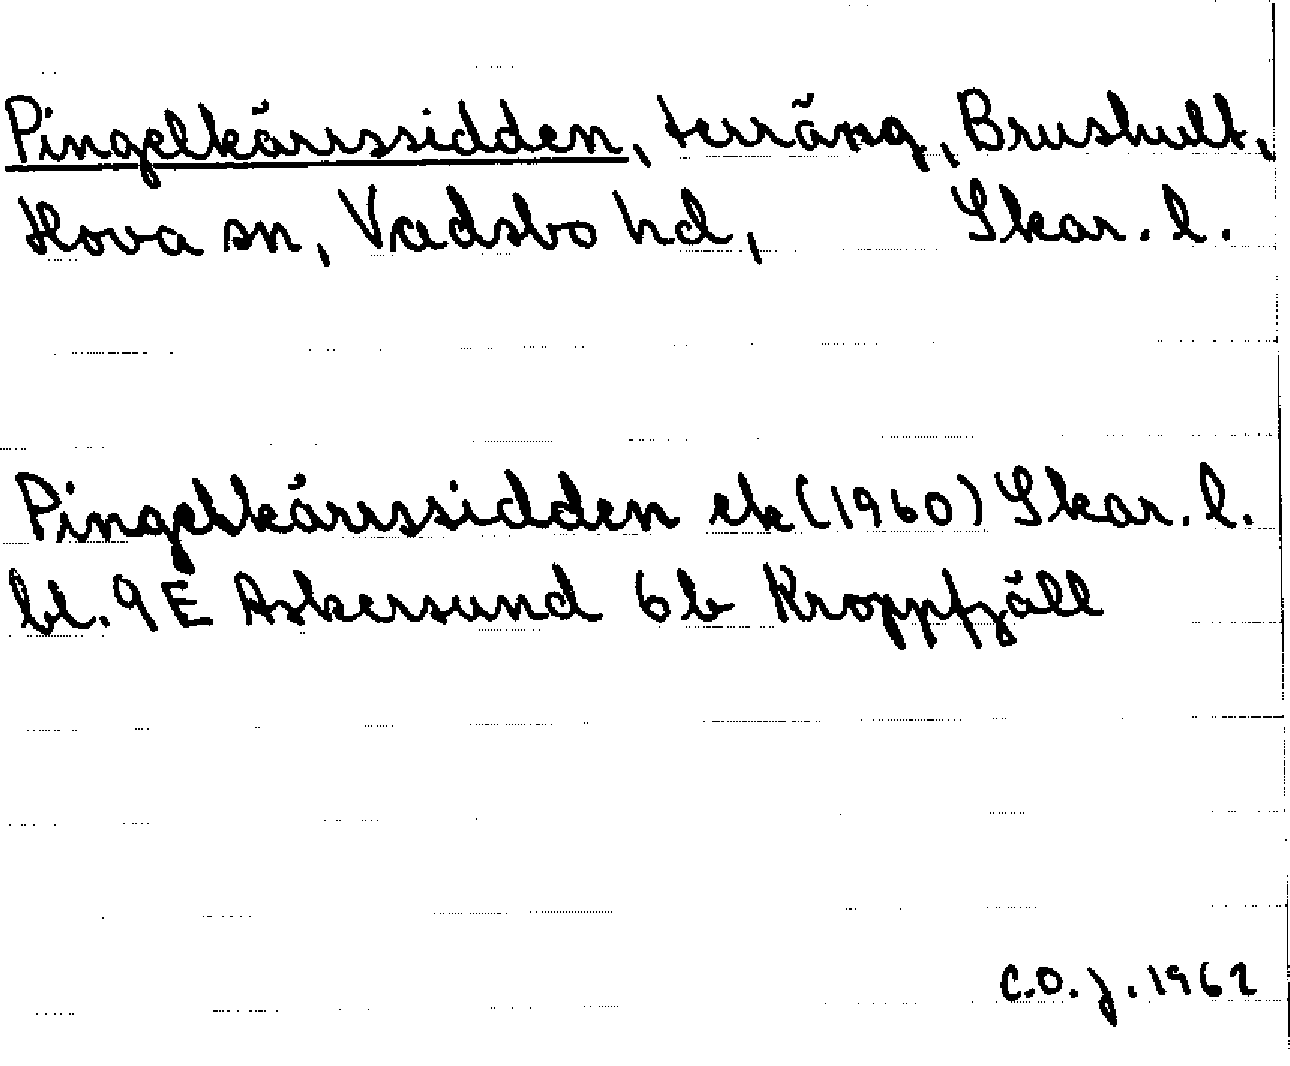 Pingelkärrssidden, terräng, Brushult,
Hova sn, Vadsbo hd, Skar. l.
Pingelkärrssidden ek (1960) Skar. l.
bl. 9E Askersund 6b Kroppfjäll
C.O.J. 1962